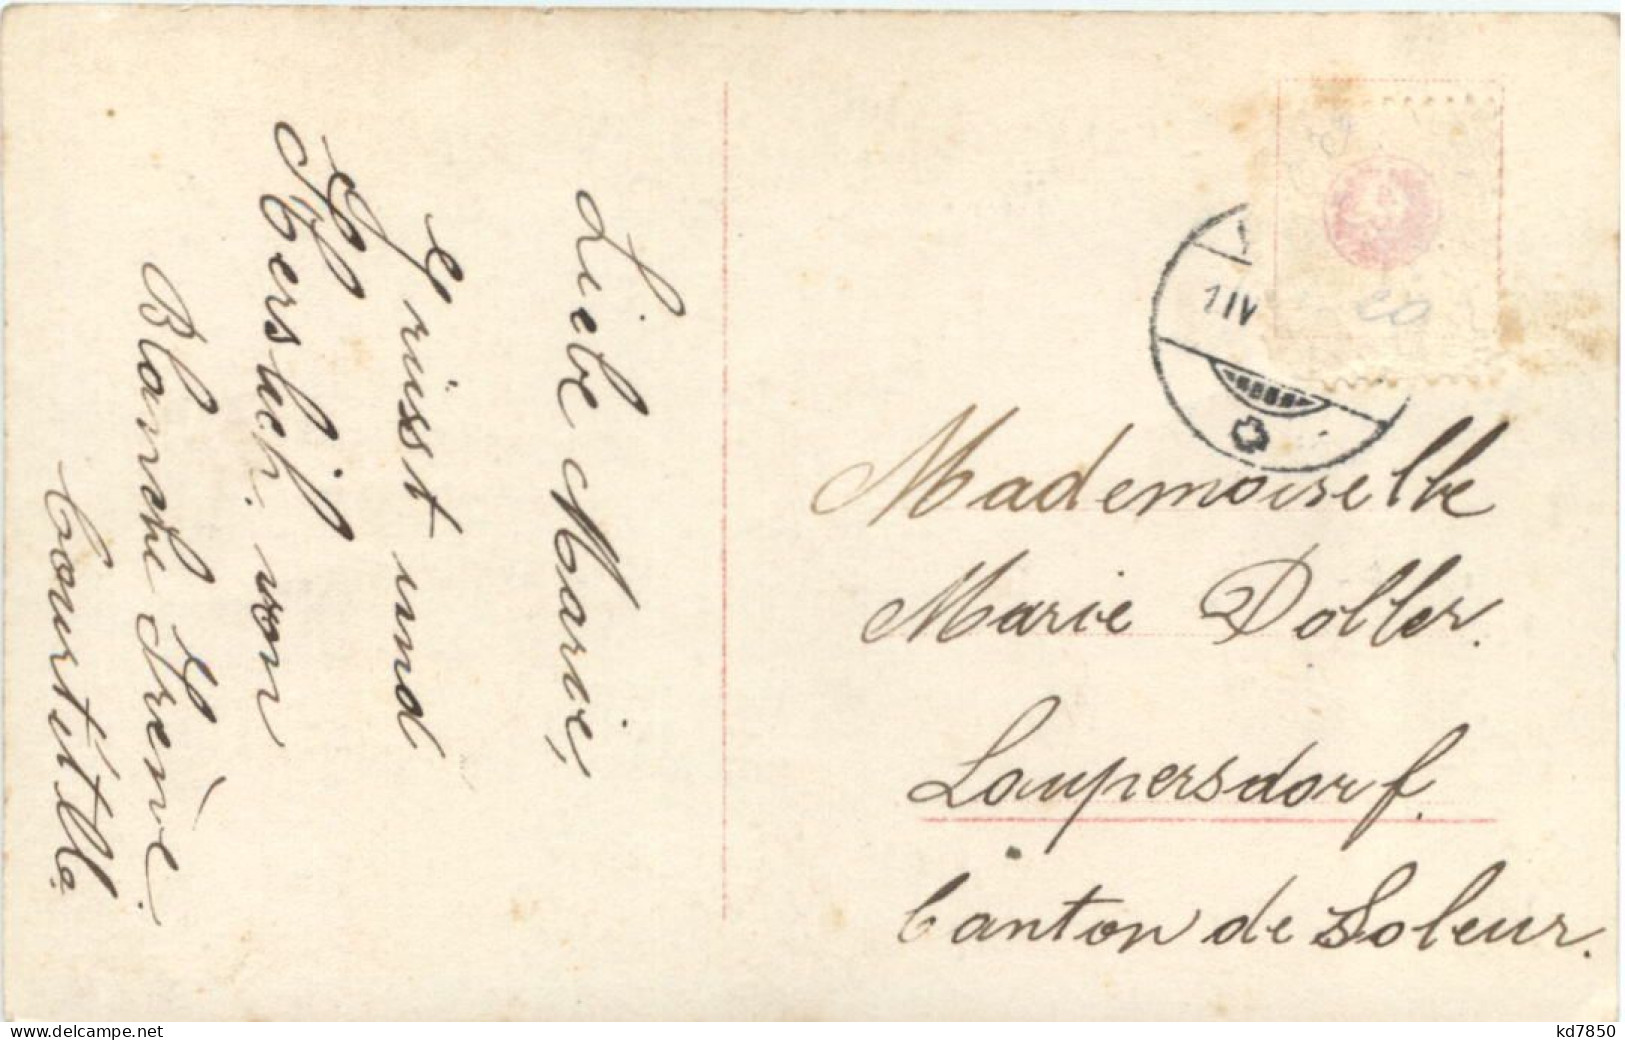 Liebe Marie,
Grüsst und
Herslich. von
Blanche
Courtételle.
1 IV
Mademoiselle
Marie Doller.
Laupersdorf.
Canton de Soleur.
www.delcampe.net
kd7850